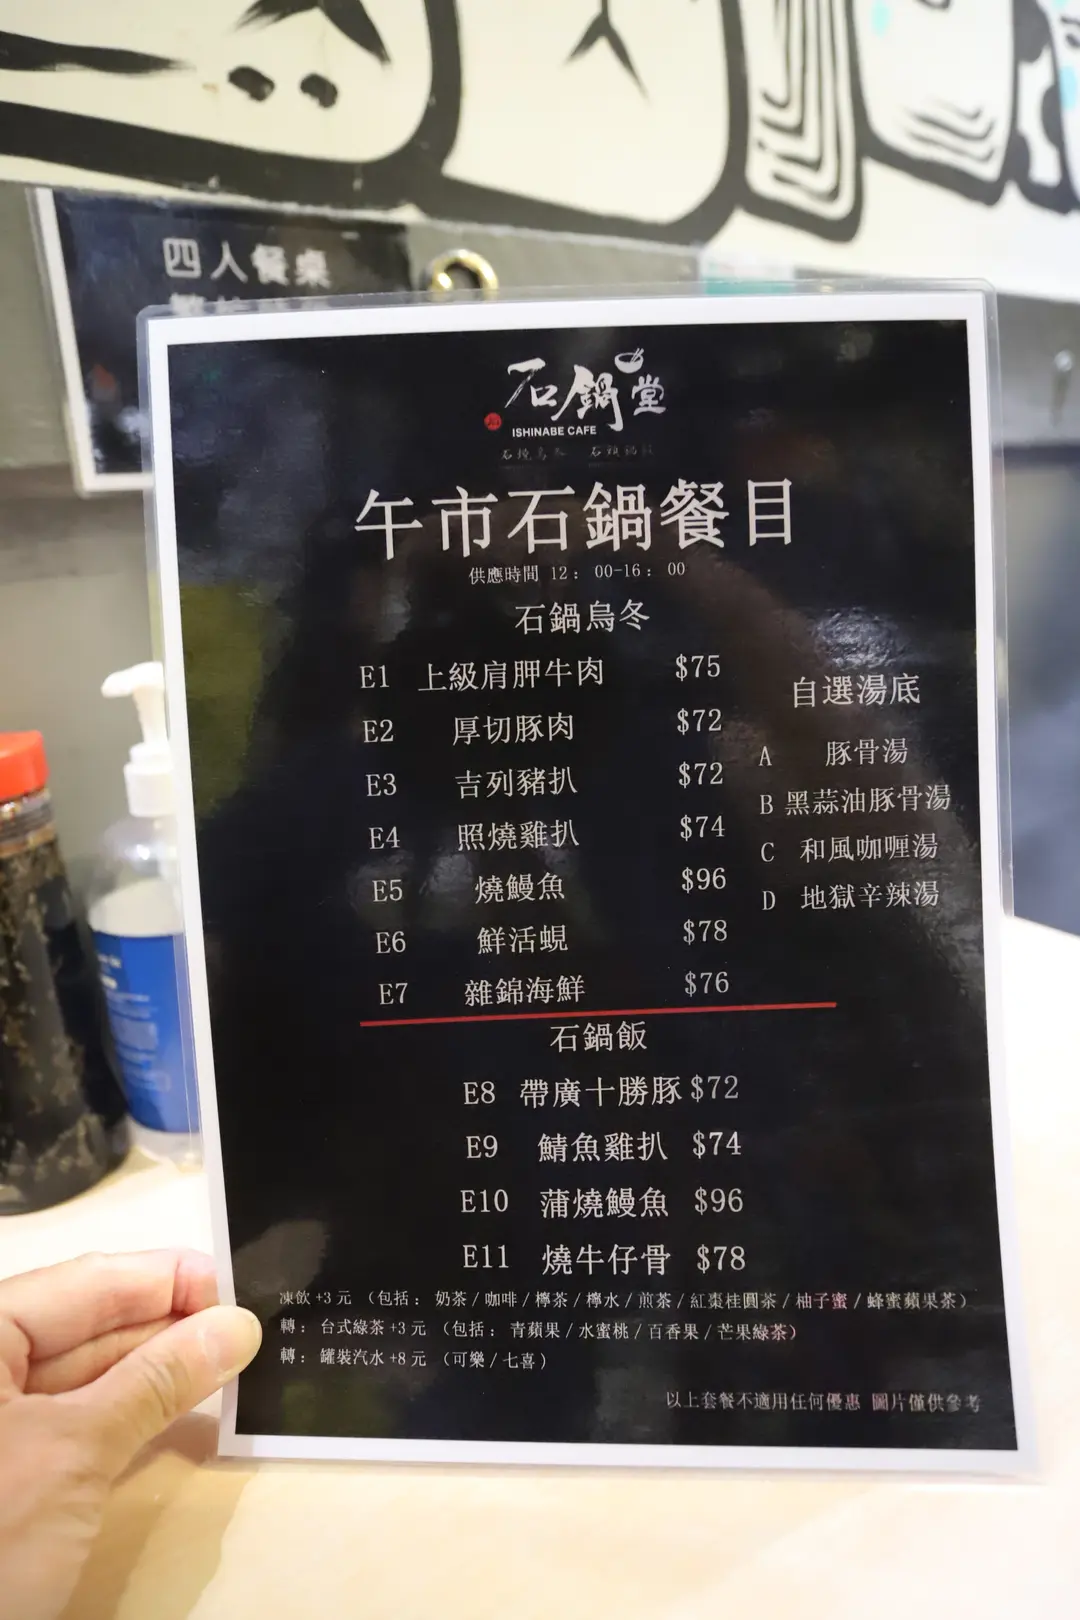 四人餐桌
石鍋堂
ISHINABE CAFE
午市石鍋餐目
供應時間 12：00-16：00
石鍋烏冬
E1 上級肩胛牛肉 $75
E2 厚切豚肉 $72
E3 吉列豬扒 $72
E4 照燒雞扒 $74
E5 燒鰻魚 $96
E6 鮮活蜆 $78
E7 雜錦海鮮 $76
自選湯底
A 豚骨湯
B 黑蒜油豚骨湯
C 和風咖喱湯
D 地獄辛辣湯
石鍋飯
E8 帶廣十勝豚 $72
E9 鯖魚雞扒 $74
E10 蒲燒鰻魚 $96
E11 燒牛仔骨 $78
凍飲+3元（包括：奶茶/咖啡/檸茶/檸水/煎茶/紅棗桂圓茶/柚子蜜/蜂蜜蘋果茶）
轉：台式綠茶+3元（包括：青蘋果/水蜜桃/百香果/芒果綠茶）
轉：罐裝汽水+8元（可樂/七喜）
以上套餐不適用任何優惠 圖片僅供參考